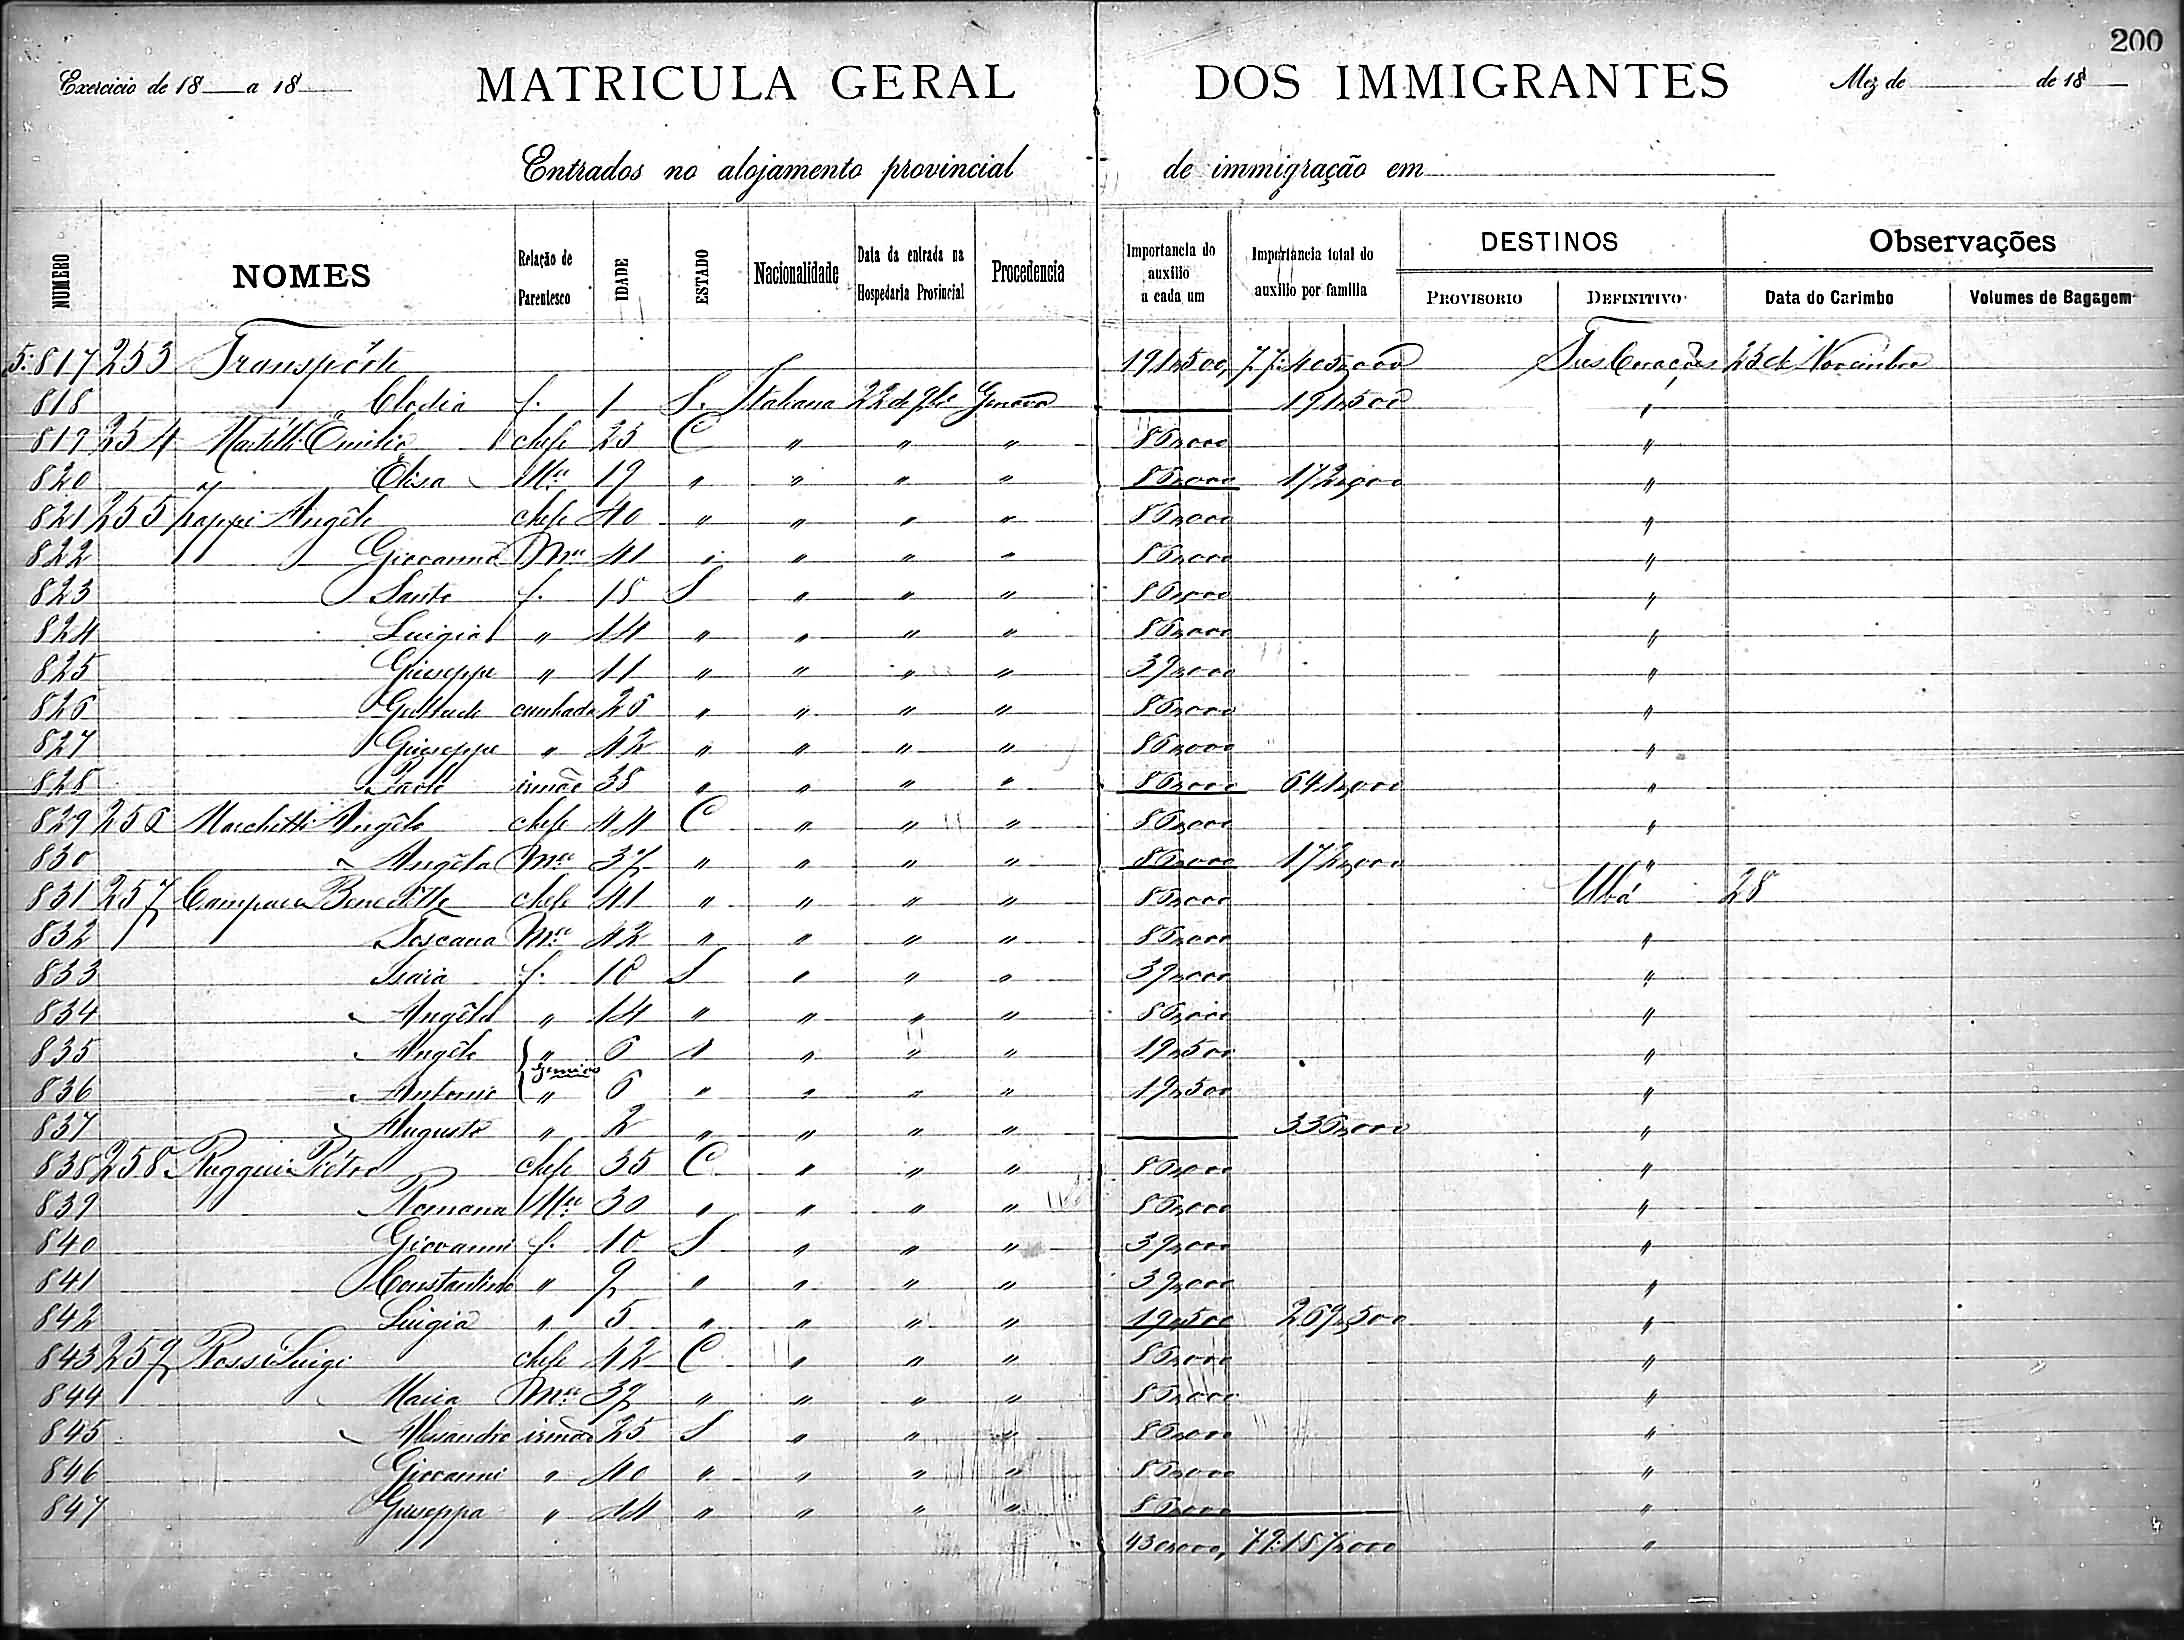 200
Exercicio de 18 a 18 MATRICULA GERAL DOS IMMIGRANTES Mez de de 18
Entrados no alojamento provincial de immigração em
NUMERO NOMES Relação de Parentesco IDADE ESTADO Nacionalidade Data da entrada na Hospedaria Provincial Procedencia Importancia do auxilio a cada um Importancia total do auxilio por familia DESTINOS PROVISORIO DEFINITIVO Observações Data do Carimbo Volumes de Bagagem
5:817 253 Transpórte 191$500, 77:405$000 Tres Corações 25 de Novembro
818 Clodia f. 1 S. Italiana 22 de 9bro Genova 191$500 "
819 254 Emilio chefe 25 C " " " 86$000 "
820 " Elisa Mer 19 " " " " 86$000 172$000 "
821 255 Zappi Angelo chefe 40 " " " " 86$000 "
822 Giovanna Mer 41 " " " " 86$000 "
823 Santo f. 18 S " " " 86$000 "
824 Luigia " 14 " " " " 86$000 "
825 Giuseppe " 11 " " " " 39$000 "
826 cunhada 26 " " " " 86$000 "
827 Giuseppe " 42 " " " " 86$000 "
828 Paolo irmão 38 " " " " 86$000 641$000 "
829 256 Marchetti Angelo chefe 44 C " " " 86$000 "
830 " Angela Mer 37 " " " " 86$000 172$000 "
831 257 chefe 41 " " " " 86$000 Ubá 28
832 Toscana Mer 42 " " " " 86$000 "
833 Isaia f. 10 S " " " 39$000 "
834 Angela " 14 " " " " 86$000 "
835 Angelo " 6 " " " " 19$500 "
Gemeos
836 Antonio " 6 " " " " 19$500 "
837 Augusto " 2 " " " " 336$000 "
838 258 Ruggeri Pietro chefe 35 C " " " 86$000 "
839 Romana Mer 30 " " " " 86$000 "
840 Giovanni f. 10 S " " " 39$000 "
841 Constantino " 9 " " " " 39$000 "
842 Luigia " 5 " " " " 19$500 269$500 "
843 259 Rossi Luigi chefe 42 C " " " 86$000 "
844 Maria Mer 39 " " " " 86$000 "
845 Alesandro irmão 25 S " " " 86$000 "
846 Giovanni " 40 " " " " 86$000 "
847 Giuseppa " 44 " " " " 86$000 "
430$000, 79:187$000 "